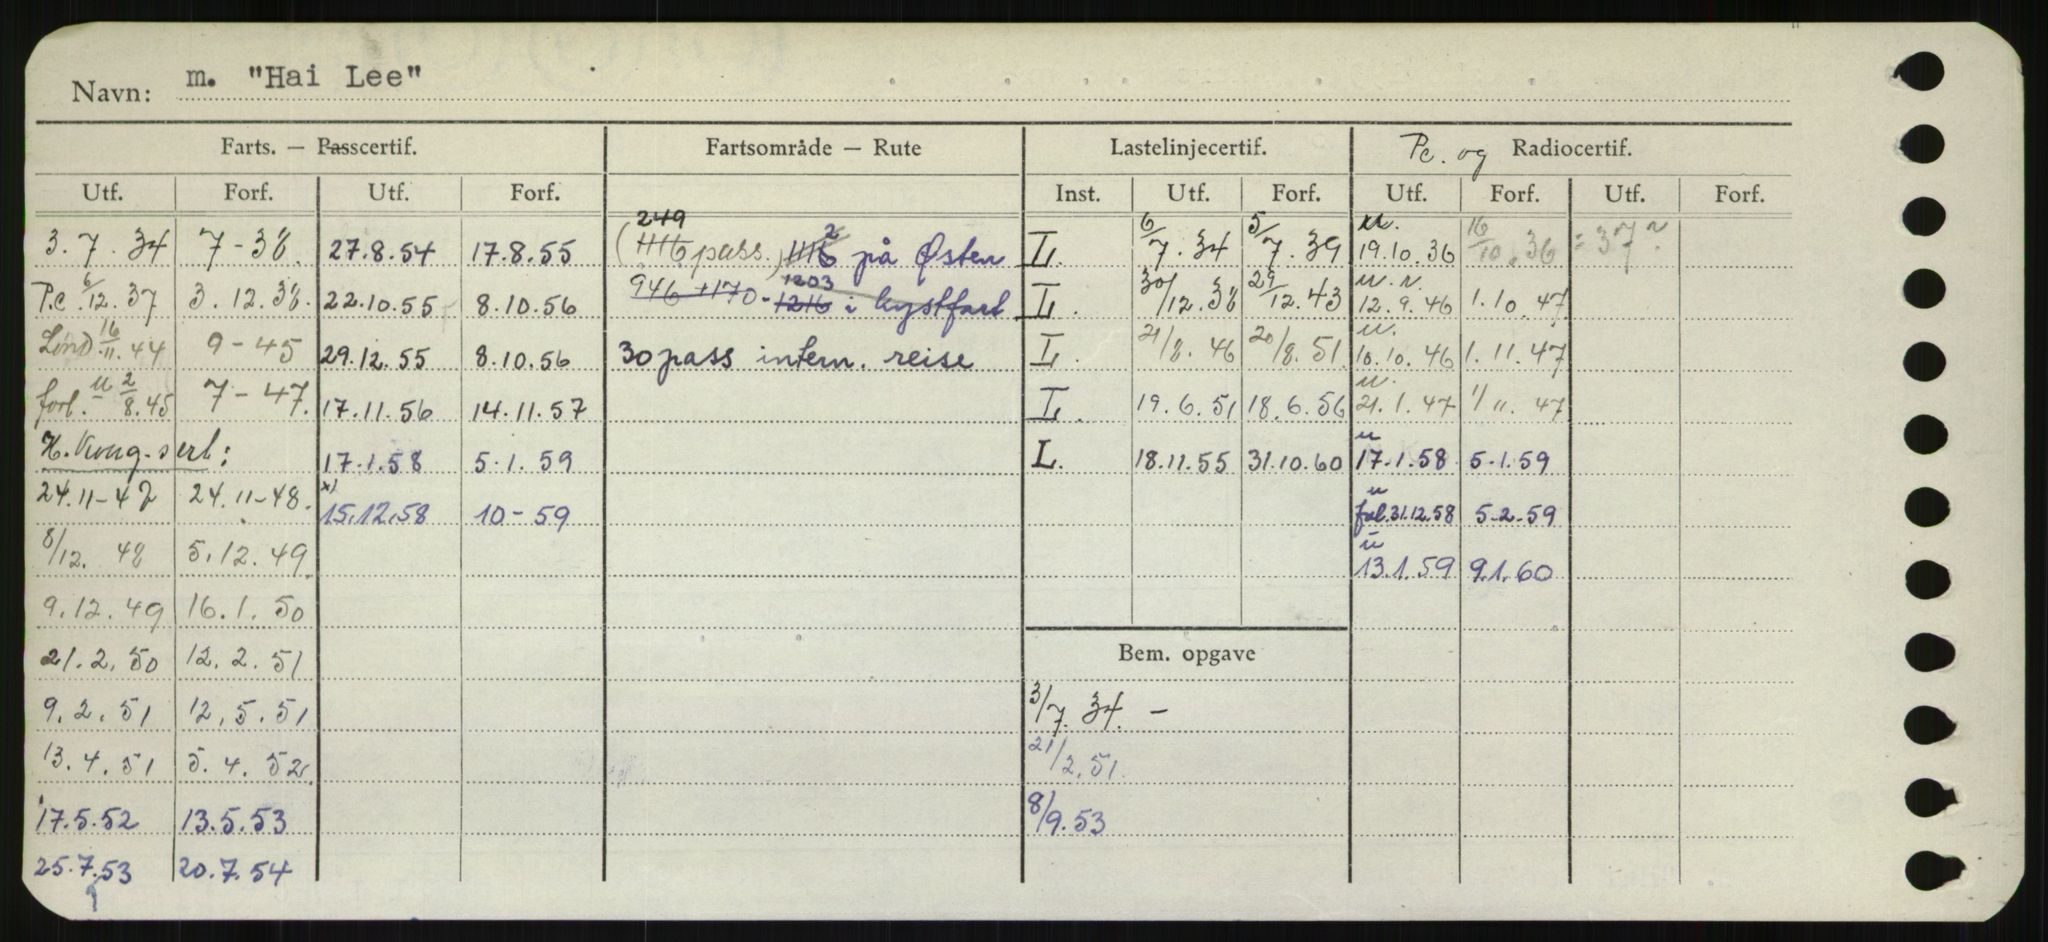 Navn: m. "Hai Lee"
Farts. — Passcertif. Fartsområde — Rute Lastelinjecertif. Pc. og Radiocertif.
Utf. Forf. Utf. Forf. Inst. Utf. Forf. Utf. Forf. Utf. Forf.
249 2 6/ 5/ u. 16/
3.7.34 7-38. 27.8.54 17.8.55 ( pass.) på Østen L. 7.34 7.39 19.10.36 10.36 = 37
1203 u.r.
P.c 6/12.37 3.12.38. 22.10.55 8.10.56 946 +170 - 1216 i kystfart L. 30/12.38 29/12.43 12.9.46 1.10.47
u.
Lond. 16/11.44 9-45 29.12.55 8.10.56 30 pass intern. reise L. 21/8.46 20/8.51 10.10.46 1.11.47
u.
forl. u 2/8.45 7-47. 17.11.56 14.11.57 L. 19.6.51 18.6.56 21.1.47 1/11.47
u
H.Kong-sert: 17.1.58 5.1.59 L. 18.11.55 31.10.60 17.1.58 5.1.59
x) u
24.11-47 24.11-48. 15.12.58 10-59 31.12.58 5.2.59
u
8/12.48 5.12.49 13.1.59 9.1.60
9.12.49 16.1.50
21.2.50 12.2.51 Bem. opgave
9.2.51 12.5.51 3/7.34. —
13.4.51 5.4.52 21/2.51.
17.5.52 13.5.53 8/9.53
25.7.53 20.7.54